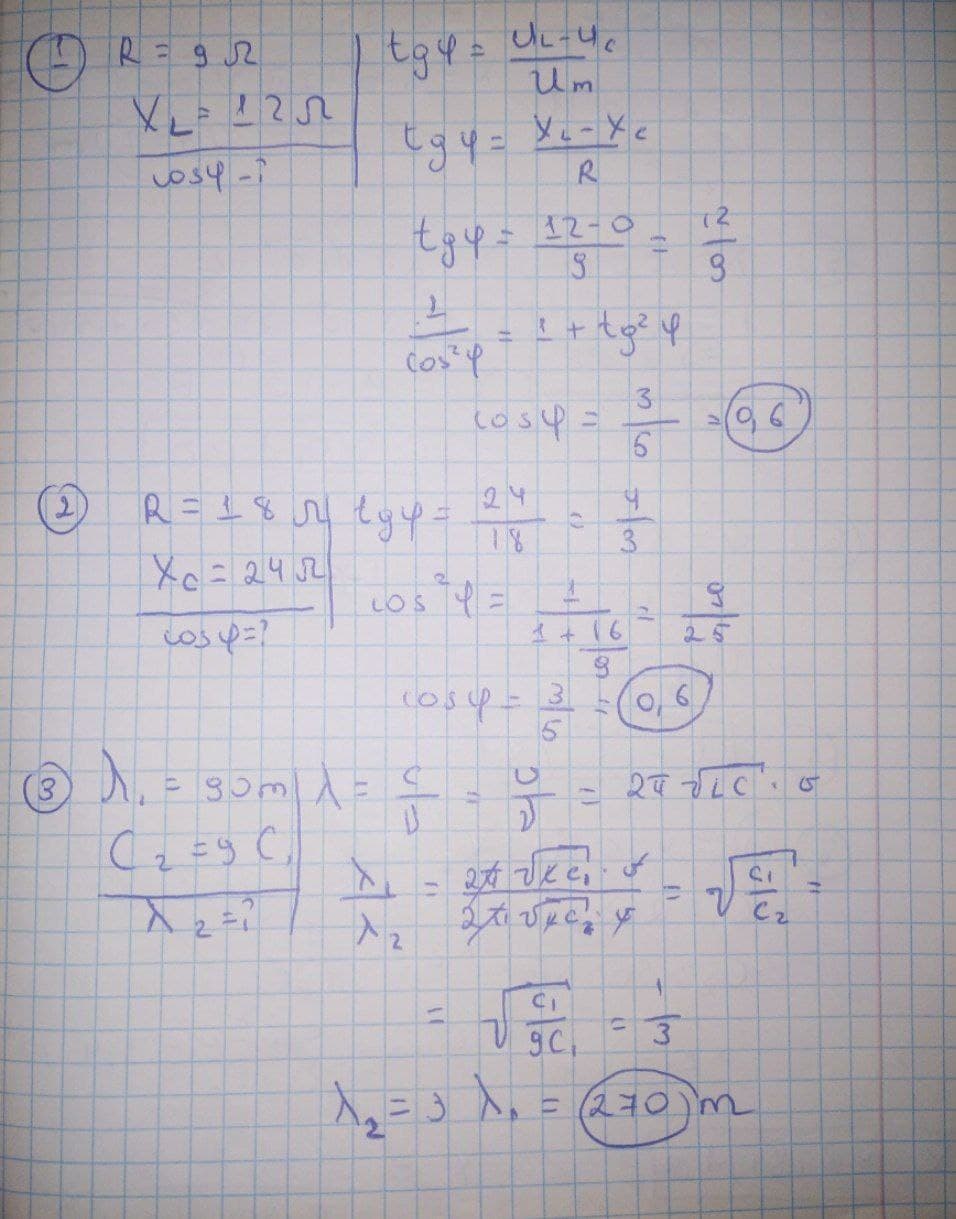 1 R = 9 Ω
X_L = 12 Ω
cosφ - ?
tgφ = (U_L - U_C) / U_m
tgφ = (X_L - X_C) / R
tgφ = (12 - 0) / 9 = 12 / 9
1 / cos²φ = 1 + tg²φ
cosφ = 3 / 5 = 0,6
2 R = 18 Ω
X_C = 24 Ω
cosφ = ?
tgφ = 24 / 18 = 4 / 3
cos²φ = 1 / (1 + 16/9) = 9 / 25
cosφ = 3 / 5 = 0,6
3 λ₁ = 90 m
C₂ = 9 C₁
λ₂ = ?
λ = c / ν = υ / ν = 2π √LC · υ
λ₁ / λ₂ = 2π √LC₁ · υ / 2π √LC₂ · υ = √(C₁ / C₂) =
= √(C₁ / 9C₁) = 1 / 3
λ₂ = 3 λ₁ = 270 m